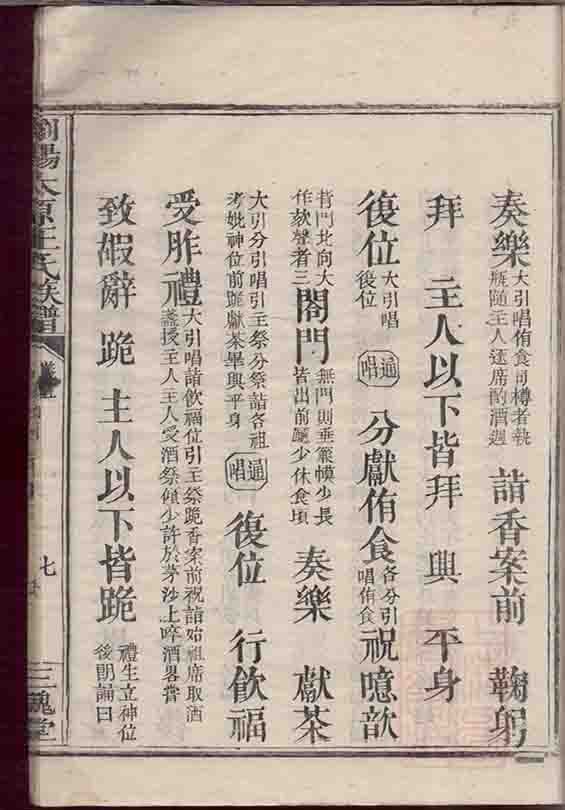 奏樂 大引唱侑食司樽者執瓶隨主人逐席酌酒週 詣香案前 鞠躬
拜 主人以下皆拜 興 平身
復位 大引唱復位 通唱 分獻侑食 各分引唱侑食 祝噫歆
背門北向大作欬聲者三 闔門 無門則垂簾幙少長皆出前廳少休食頃 奏樂 獻茶
大引分引唱引主祭分祭詣各祖考妣神位前跪獻茶畢興平身 通唱 復位 行飲福
受胙禮 大引唱詣飲福位引主祭跪香案前祝詣始祖席取酒盞授主人主人受酒祭傾少許於茅沙上啐酒畧嘗
致嘏辭 跪 主人以下皆跪 禮生立神位後朗誦曰
瀏陽太原王氏族譜
七
三槐堂